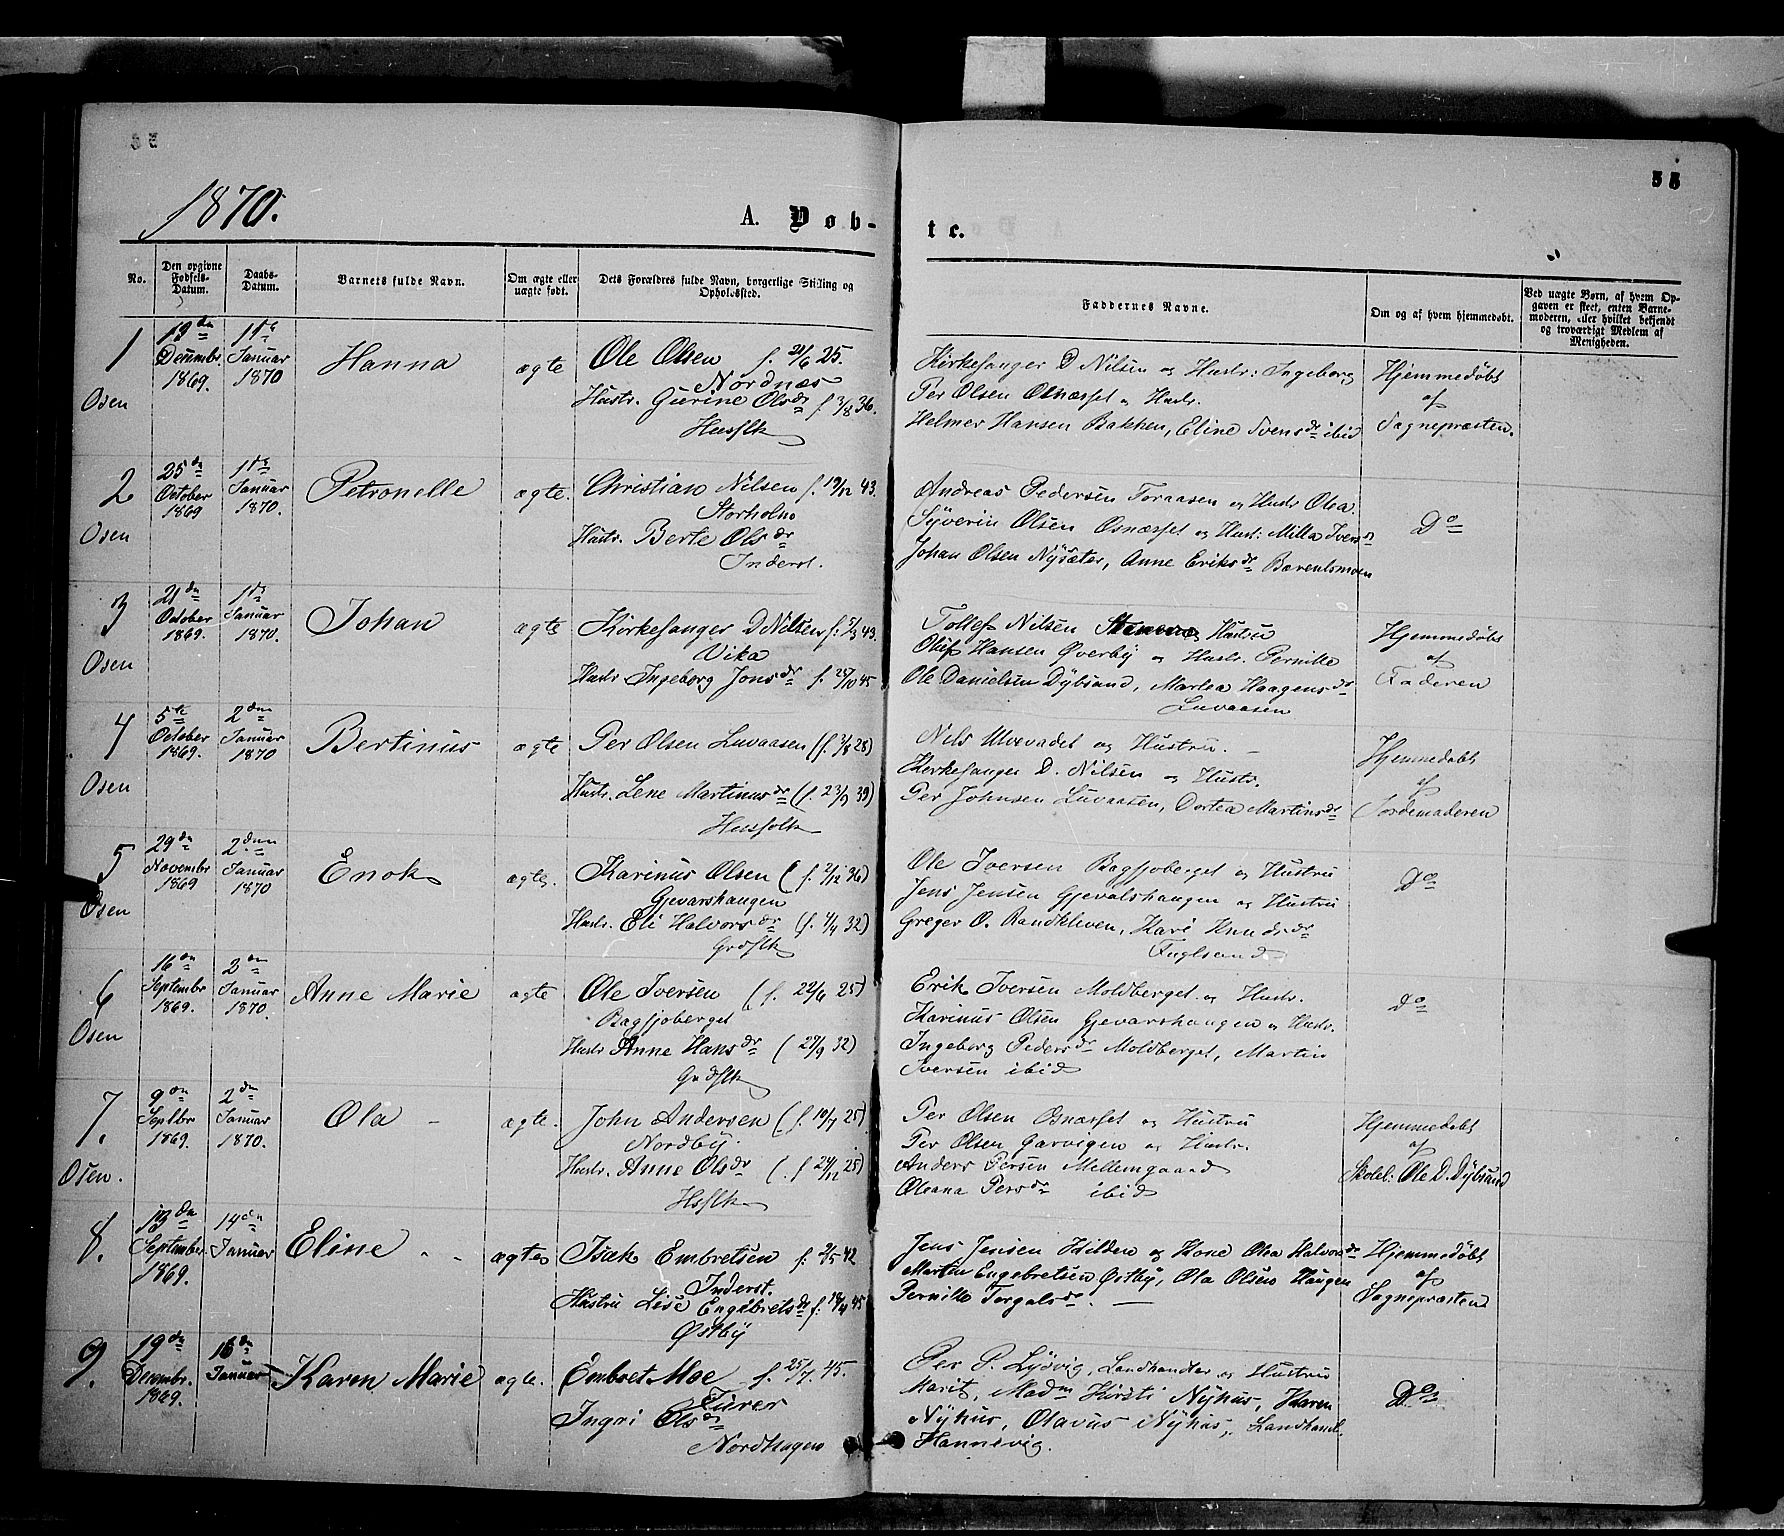 55
1870.
A. Døb-
te.
No.
Den opgivne Fødsels-Datum.
Daabs-Datum.
Barnets fulde Navn.
Om ægte eller uægte født.
Dets Forældres fulde Navn, borgerlige Stilling og Opholdssted.
Faddernes Navne.
Om og af hvem hjemmedøbt.
Ved uægte Børn, af hvem Opgaven er skeet, enten Barnemoderen, eller hvilket bekjendt og troværdigt Medlem af Menigheden.
1
Osen
19de Decembr. 1869.
1ste Januar 1870
Hanna
ægte
Ole Olsen f. 21/6 25.
Nordnæs
Hustr. Gurine Olsdr f. 3/8 36.
Husflk
Kirkesanger D Nilsen og Hustr: Ingeborg
Per Olsen Osnæsset og Hustr.
Helmer Hansen Bakken, Eline Svensdr ibid
Hjemmedøbt
af
Sognepræsten.
2
Osen
25de October 1869
1ste Januar 1870.
Petronelle
ægte.
Christian Nilsen f. 19/12 43.
Storholmo
Hustr. Berte Olsdr
Inderst.
Andreas Pedersen Foraasen og Hustr Olea
Syverin Olsen Osnæsset og Hustr: Milla Iversdr
Johan Olsen Nysæter, Anne Eriksdr Bærentsmoen
Do
3
Osen
21de October 1869.
1ste Januar 1870.
Johan
ægte
Kirkesanger D Nilsen f. 5/3 43.
Vika
Hustr Ingeborg Jonsdr f. 27/10 45
Tollef Nilsen og Hustru
Oluf Hansen Øverby og Hustr. Pernille
Ole Danielsen Dybsand, Martea Haagensdr
Luvaasen
Hjemmedøbt
af
Faderen
4
Osen
5te October 1869.
2den Januar 1870
Bertinus
ægte
Per Olsen Luvaasen (f. 3/8 28)
Hustr. Lene Martinusdr (f. 23/9 39)
Husfolk
Nils Ulvevadet og Hustru. —
Kirkesanger D. Nilsen og Hustr.
Per Johnsen Luvaasen, Dortea Martinsdr
Hjemmedøbt
af
Jordemoderen
5
Osen
29de Novembr 1869
2den Januar 1870
Enok
ægte.
Karinus Olsen (f. 2/12 36)
Gjevarshaugen
Hustr. Eli Halvorsdr (f. 4/4 32)
Grdflk
Ole Iversen Bagsjoberget og Hustru
Jens Jensen Gjevalshaugen og Hustru
Greger O. Randkleven, Kari Knudsdr
Fuglsand
Do
6
Osen
16de Septembr 1869.
2den Januar 1870.
Anne Marie
ægte
Ole Iversen (f. 22/6 25)
Bagsjoberget
Hustr Anne Hansdr (27/9 32)
Grdflk
Erik Iversen Moldberget og Hustr.
Karinus Olsen Gjevarshaugen og Hustr.
Ingeborg Pedersdr Moldberget, Martin
Iversen ibid
Do
7.
Osen.
9de Septbr 1869.
2den Januar 1870.
Ola —
ægte.
John Andersen (f. 10/7 25)
Nordby.
Hustr. Anne Olsdr (f. 24/12 25)
Hsflk
Per Olsen Osnæsset og Hustru
Per Olsen Garvigen og Hustr.
Anders Persen Mellemgaard
Oleana Persdr ibid
Hjemmedøbt
af
Skolel: Ole D. Dybsand
8.
13de September 1869.
14de Januar
Eline - -
ægte
Isak Embretsen f. 9/5 42
Inderst.
Hustru Lise Engebretsdr f. 18/4 45
Østby
Jens Jensen Kilden og Kone Olea Halvorsdr
Marten Engebretsen Østby, Ola Olsen Haugen
Pernille Torgalsdr. —
Hjemmedøbt
af
Sognepræsten
9.
19de Decembr. 1869.
16de Januar
Karen Marie
ægte.
Embret Moe f. 25/7 45.
Furer
Ingri Olsdr
Nordhagen
Per P. Lysvig, Landhandler og Hustru
Marit, Madm Kirsti Nyhus, Karen
Nyhus, Olavus Nyhus, Landhandl.
Hannevig.
Do